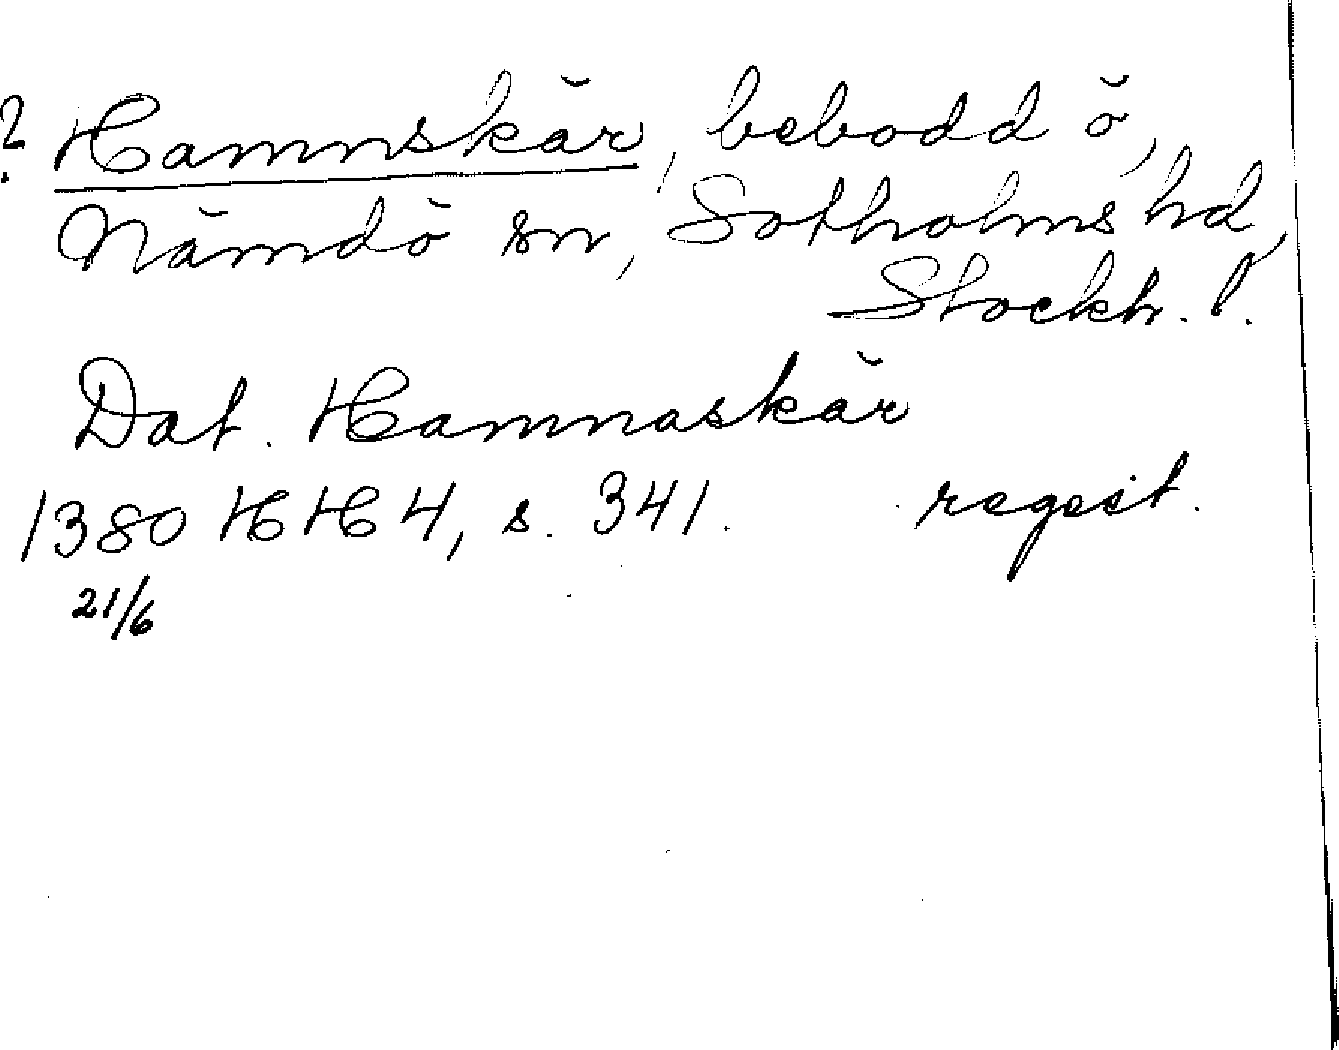 ? Hamnskär, bebodd ö,
Nämdö sn, Sotholms hd,
Stockh. l.
Dat. Hamnaskär
1380 HH 4, s. 341. regest.
21/6